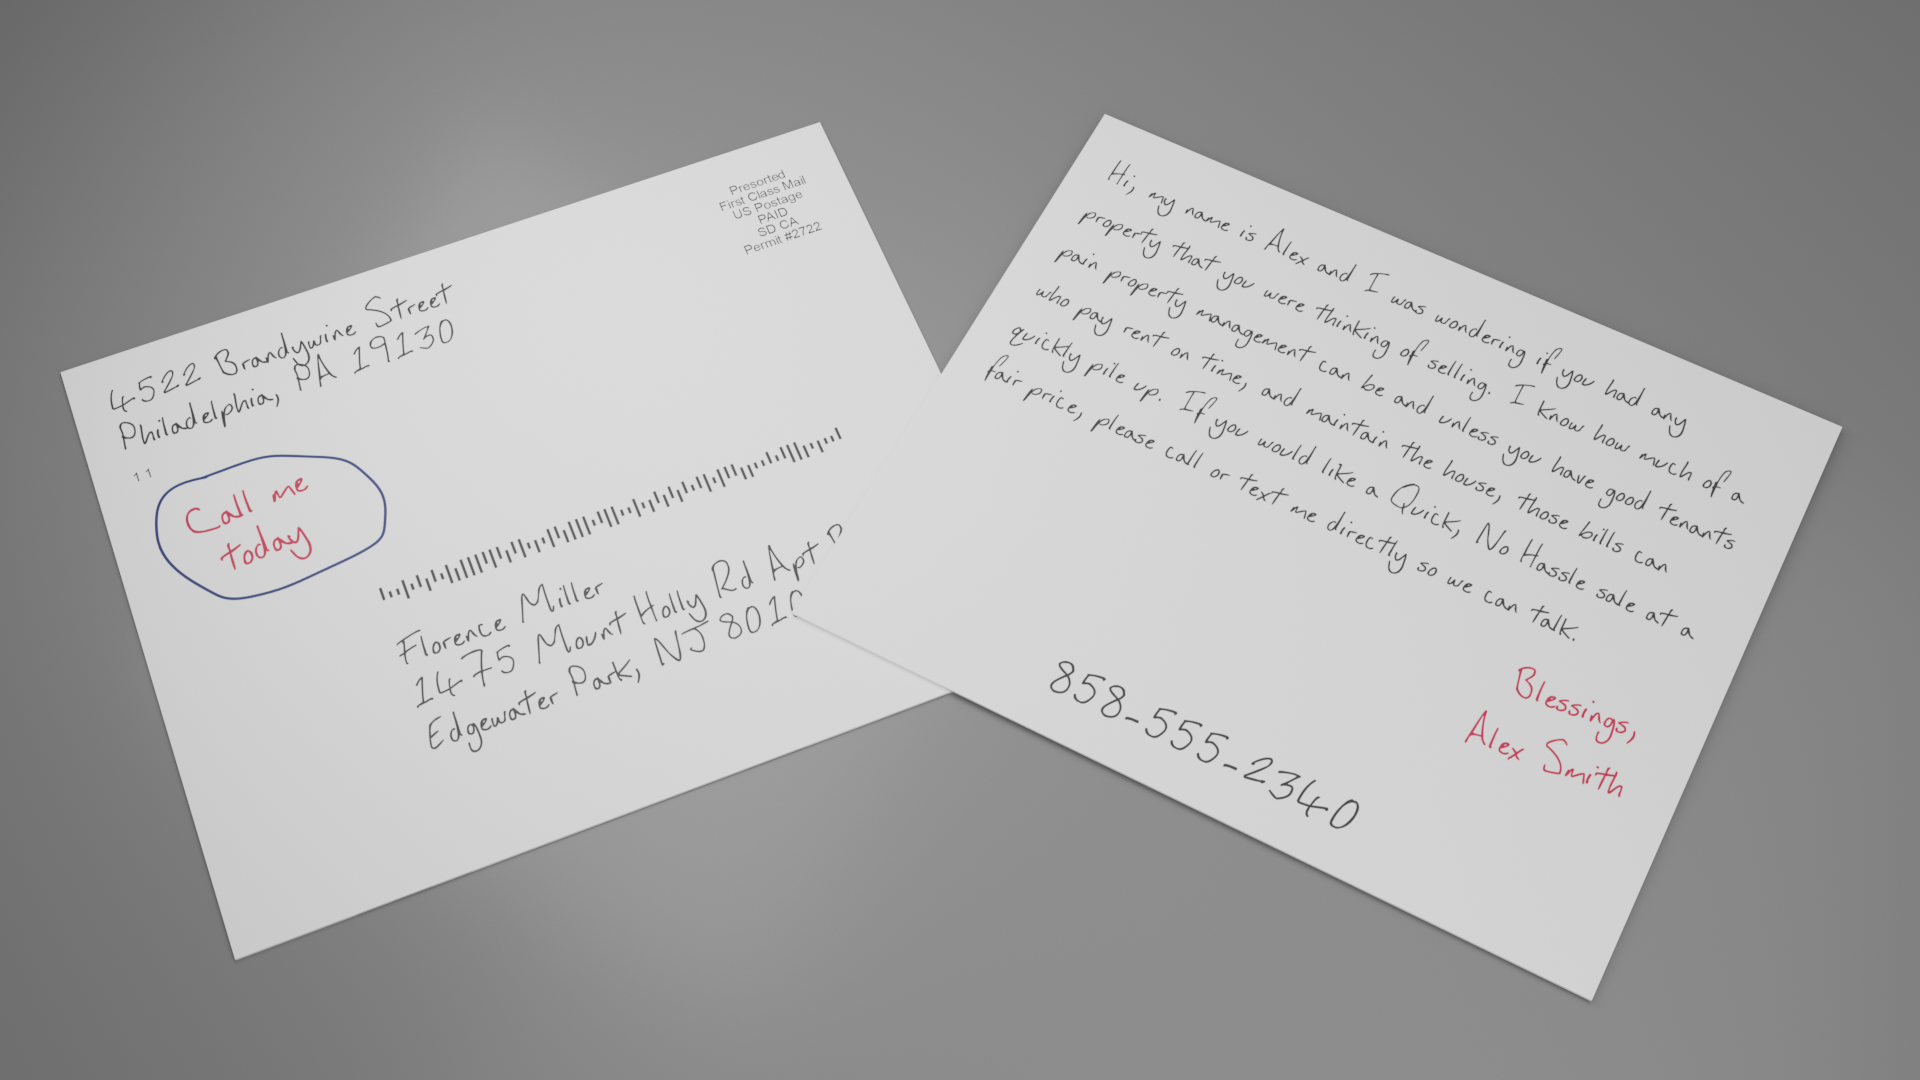 4522 Brandywine Street
Philadelphia, PA 19130
11
Call me
today
Presorted
First Class Mail
US Postage
PAID
SD CA
Permit #2722
Florence Miller
1475 Mount Holly Rd Apt
Edgewater Park, NJ
Hi, my name is Alex and I was wondering if you had any
property that you were thinking of selling. I know how much of a
pain property management can be and unless you have good tenants
who pay rent on time, and maintain the house, those bills can
quickly pile up. If you would like a Quick, No Hassle sale at a
fair price, please call or text me directly so we can talk.
Blessings,
Alex Smith
858-555-2340